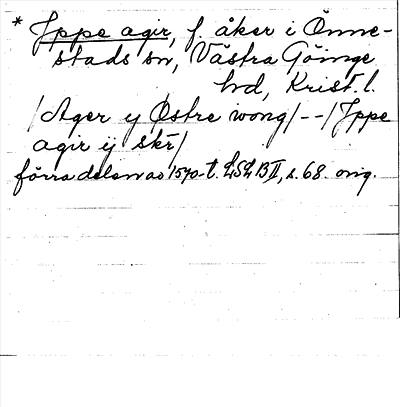 * Jppe agir, f. åker i Önne-
stads sn, Västra Göinge
hd, Krist. l.
/Ager y Østre wong/--/Jppe
agir ij skr/
förra delen av 1570-t. LSLB II, s. 68. orig.